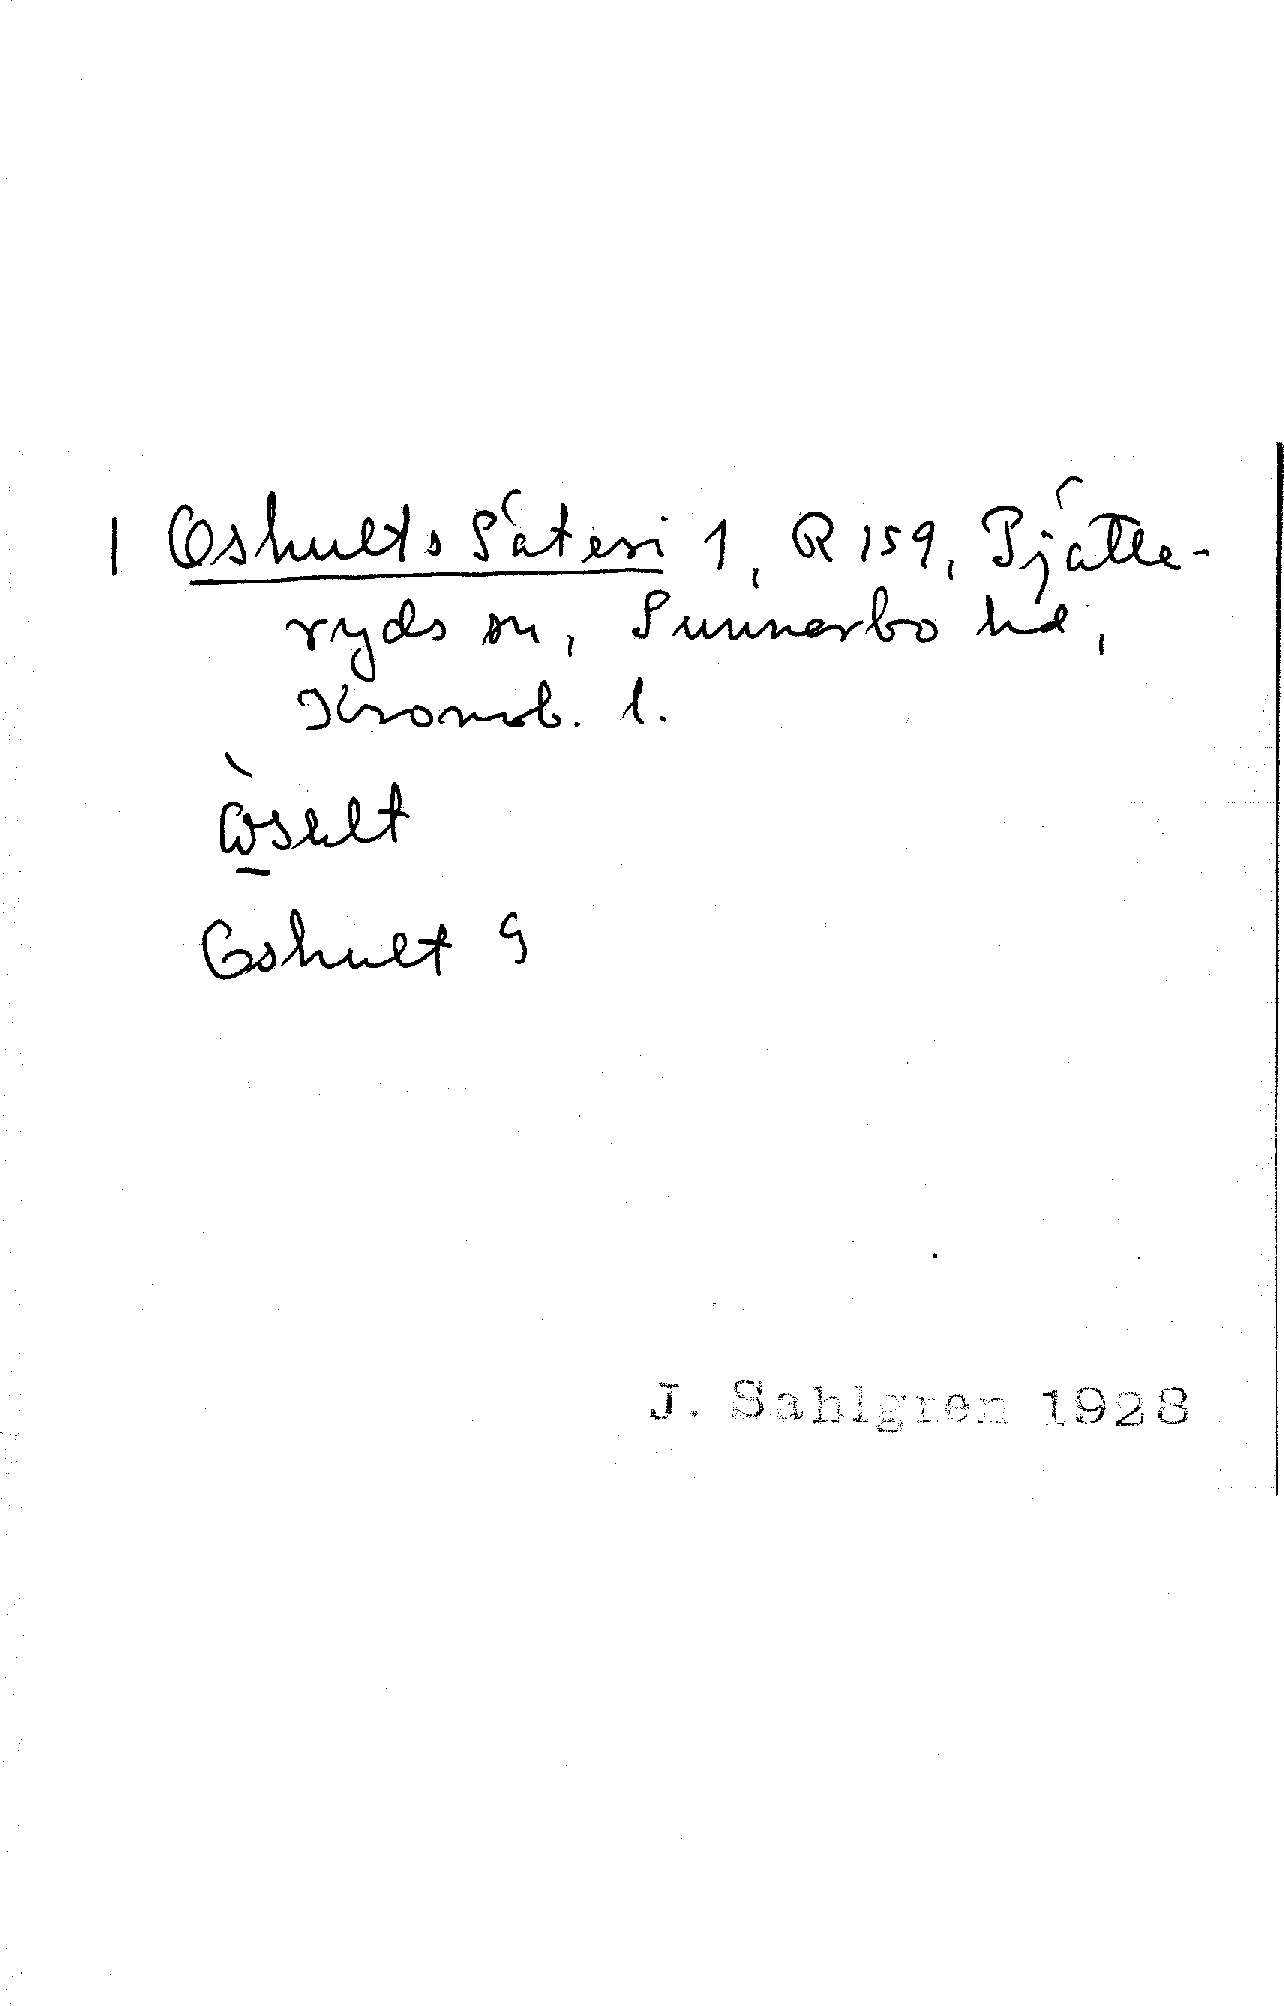 | Oshults Säteri 1, R 159, Pjätte-
ryds sn, Sunnerbo hd,
Kronob. l.
Oshult G
J. Sahlgren 1928